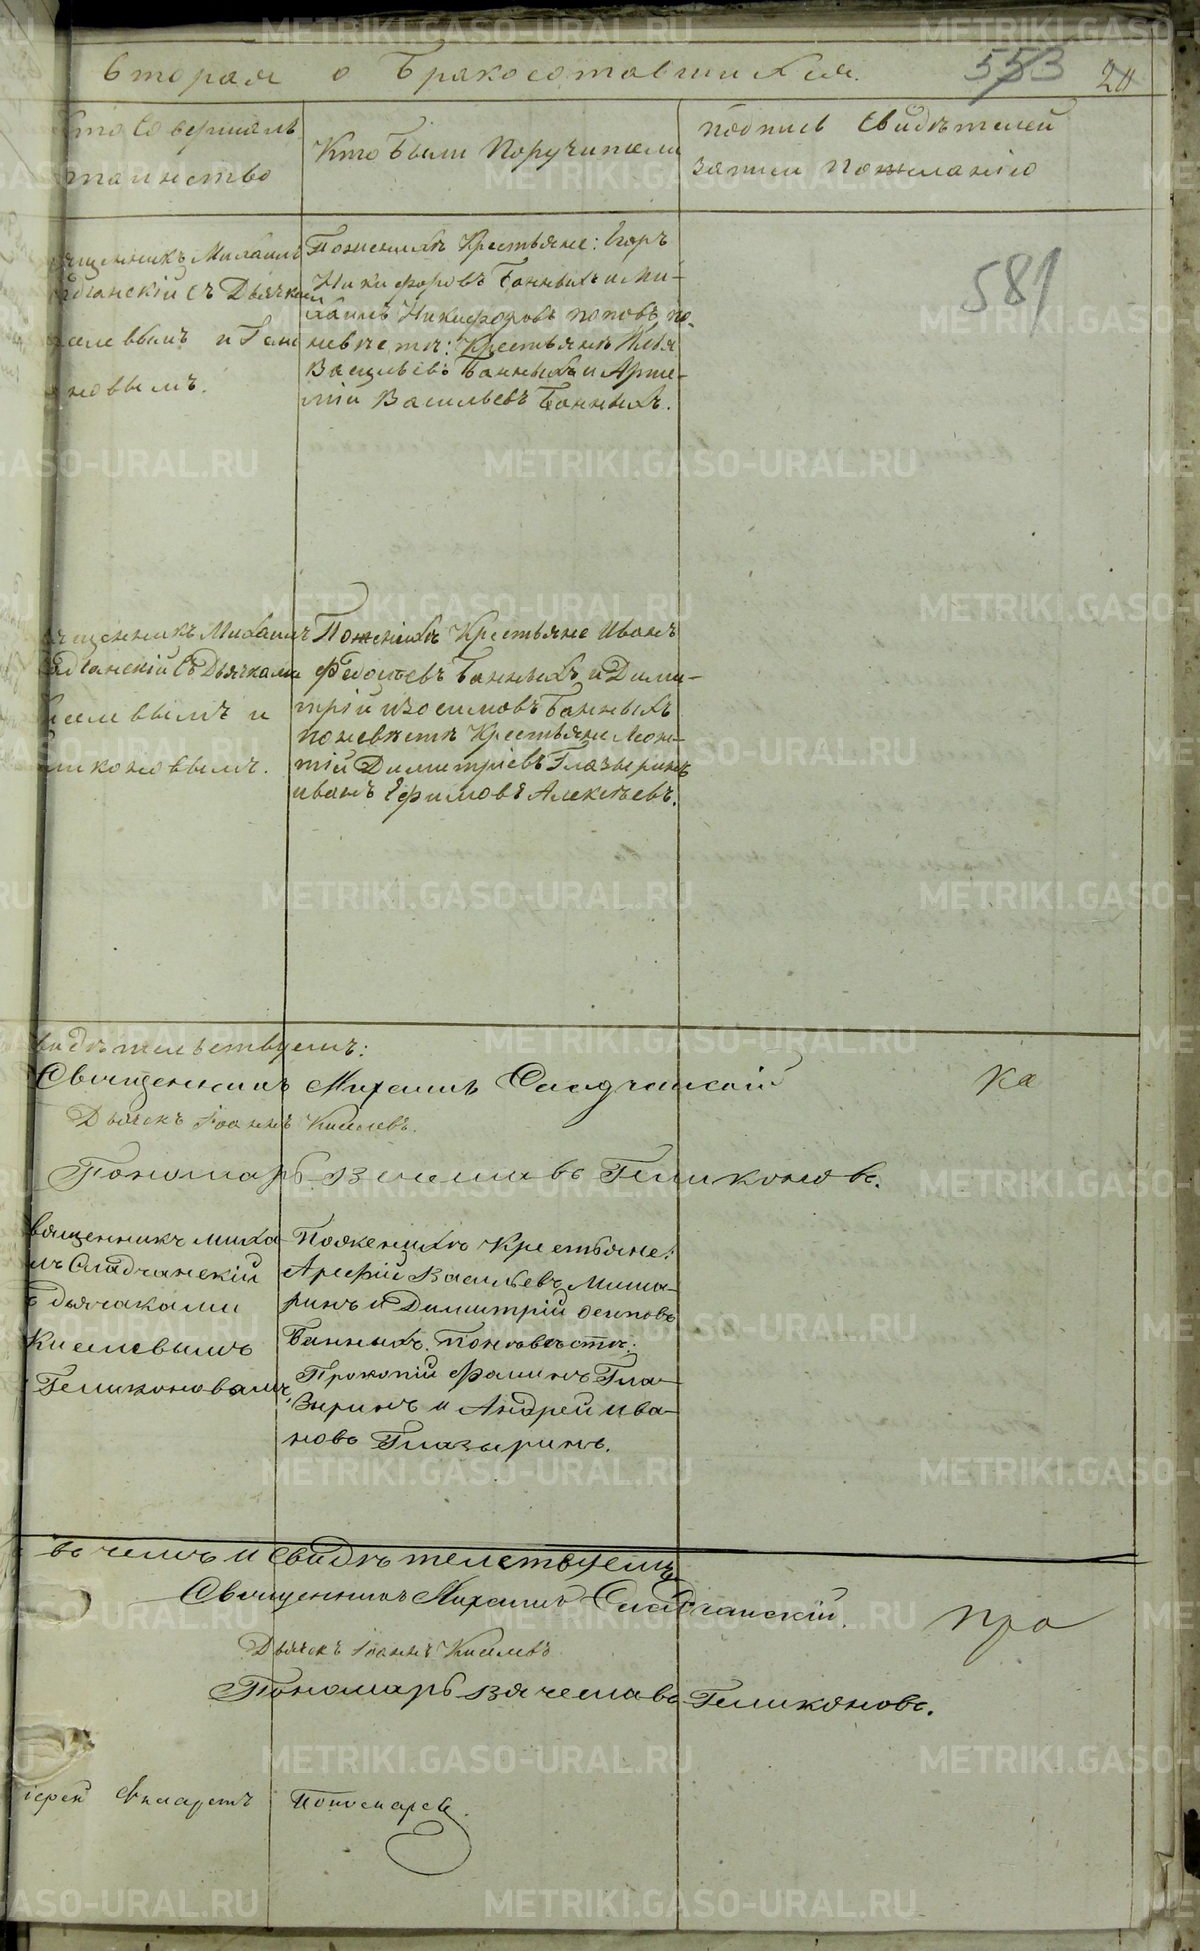 вторая о Бракосотавшихся. 553 20
кто Совершалъ
таинство
Кто Были Поручители
подпись Свидѣтелей
записи Пожеланiю
581
ященникъ Михаилъ
дчанскiй съ Дьячкам
селевымъ и Гели
новымъ.
Поженихѣ Крестьяне: Егоръ
Никифоровъ Банныхъ и Ми-
хаилъ Никифоровъ поповъ по
невѣстѣ: Крестьяне Илья
Васильевъ Банныхъ и Арте-
мiй Васильевъ Банныхъ.
ященникъ Михаилъ
адчанскiй Съ Дьячками
иселевымъ и
ликоновымъ.
Поженихѣ Крестьяне Иванъ
Федотьевъ Банныхъ и Дими-
трiй изосимовъ Банныхъ
поневѣстѣ Крестьяне Леон-
тiй Димитрiевъ Глазыринъ
иванъ Ефимовъ Алексѣевъ.
видѣтельствуемъ:
Священникъ Михаилъ Сладчанскiй ка
Дьячекъ Iоаннъ Киселевъ.
Пономарь Вячеславъ Геликоновъ.
вященникъ миха
лъ Сладчанскiй
ъ дьячками
Киселевымъ
Геликоновымъ.
Поженихѣ Крестьяне:
Арефiй Васильевъ Миша-
ринъ и Димитрiй осиповъ
Банныхъ. поневѣстѣ:
Прокопiй Фаминъ Гла-
зыринъ и Андрей ива-
новъ Глазыринъ.
въ чемъ и свидѣтелствуемъ
Священникъ Михаилъ Сладчанскiй. про
Дьячекъ Iоаннъ Киселевъ
Пономарь Вячеславъ Геликоновъ.
iерей Филаретъ Пономаревъ.
METRIKI.GASO-URAL.RU